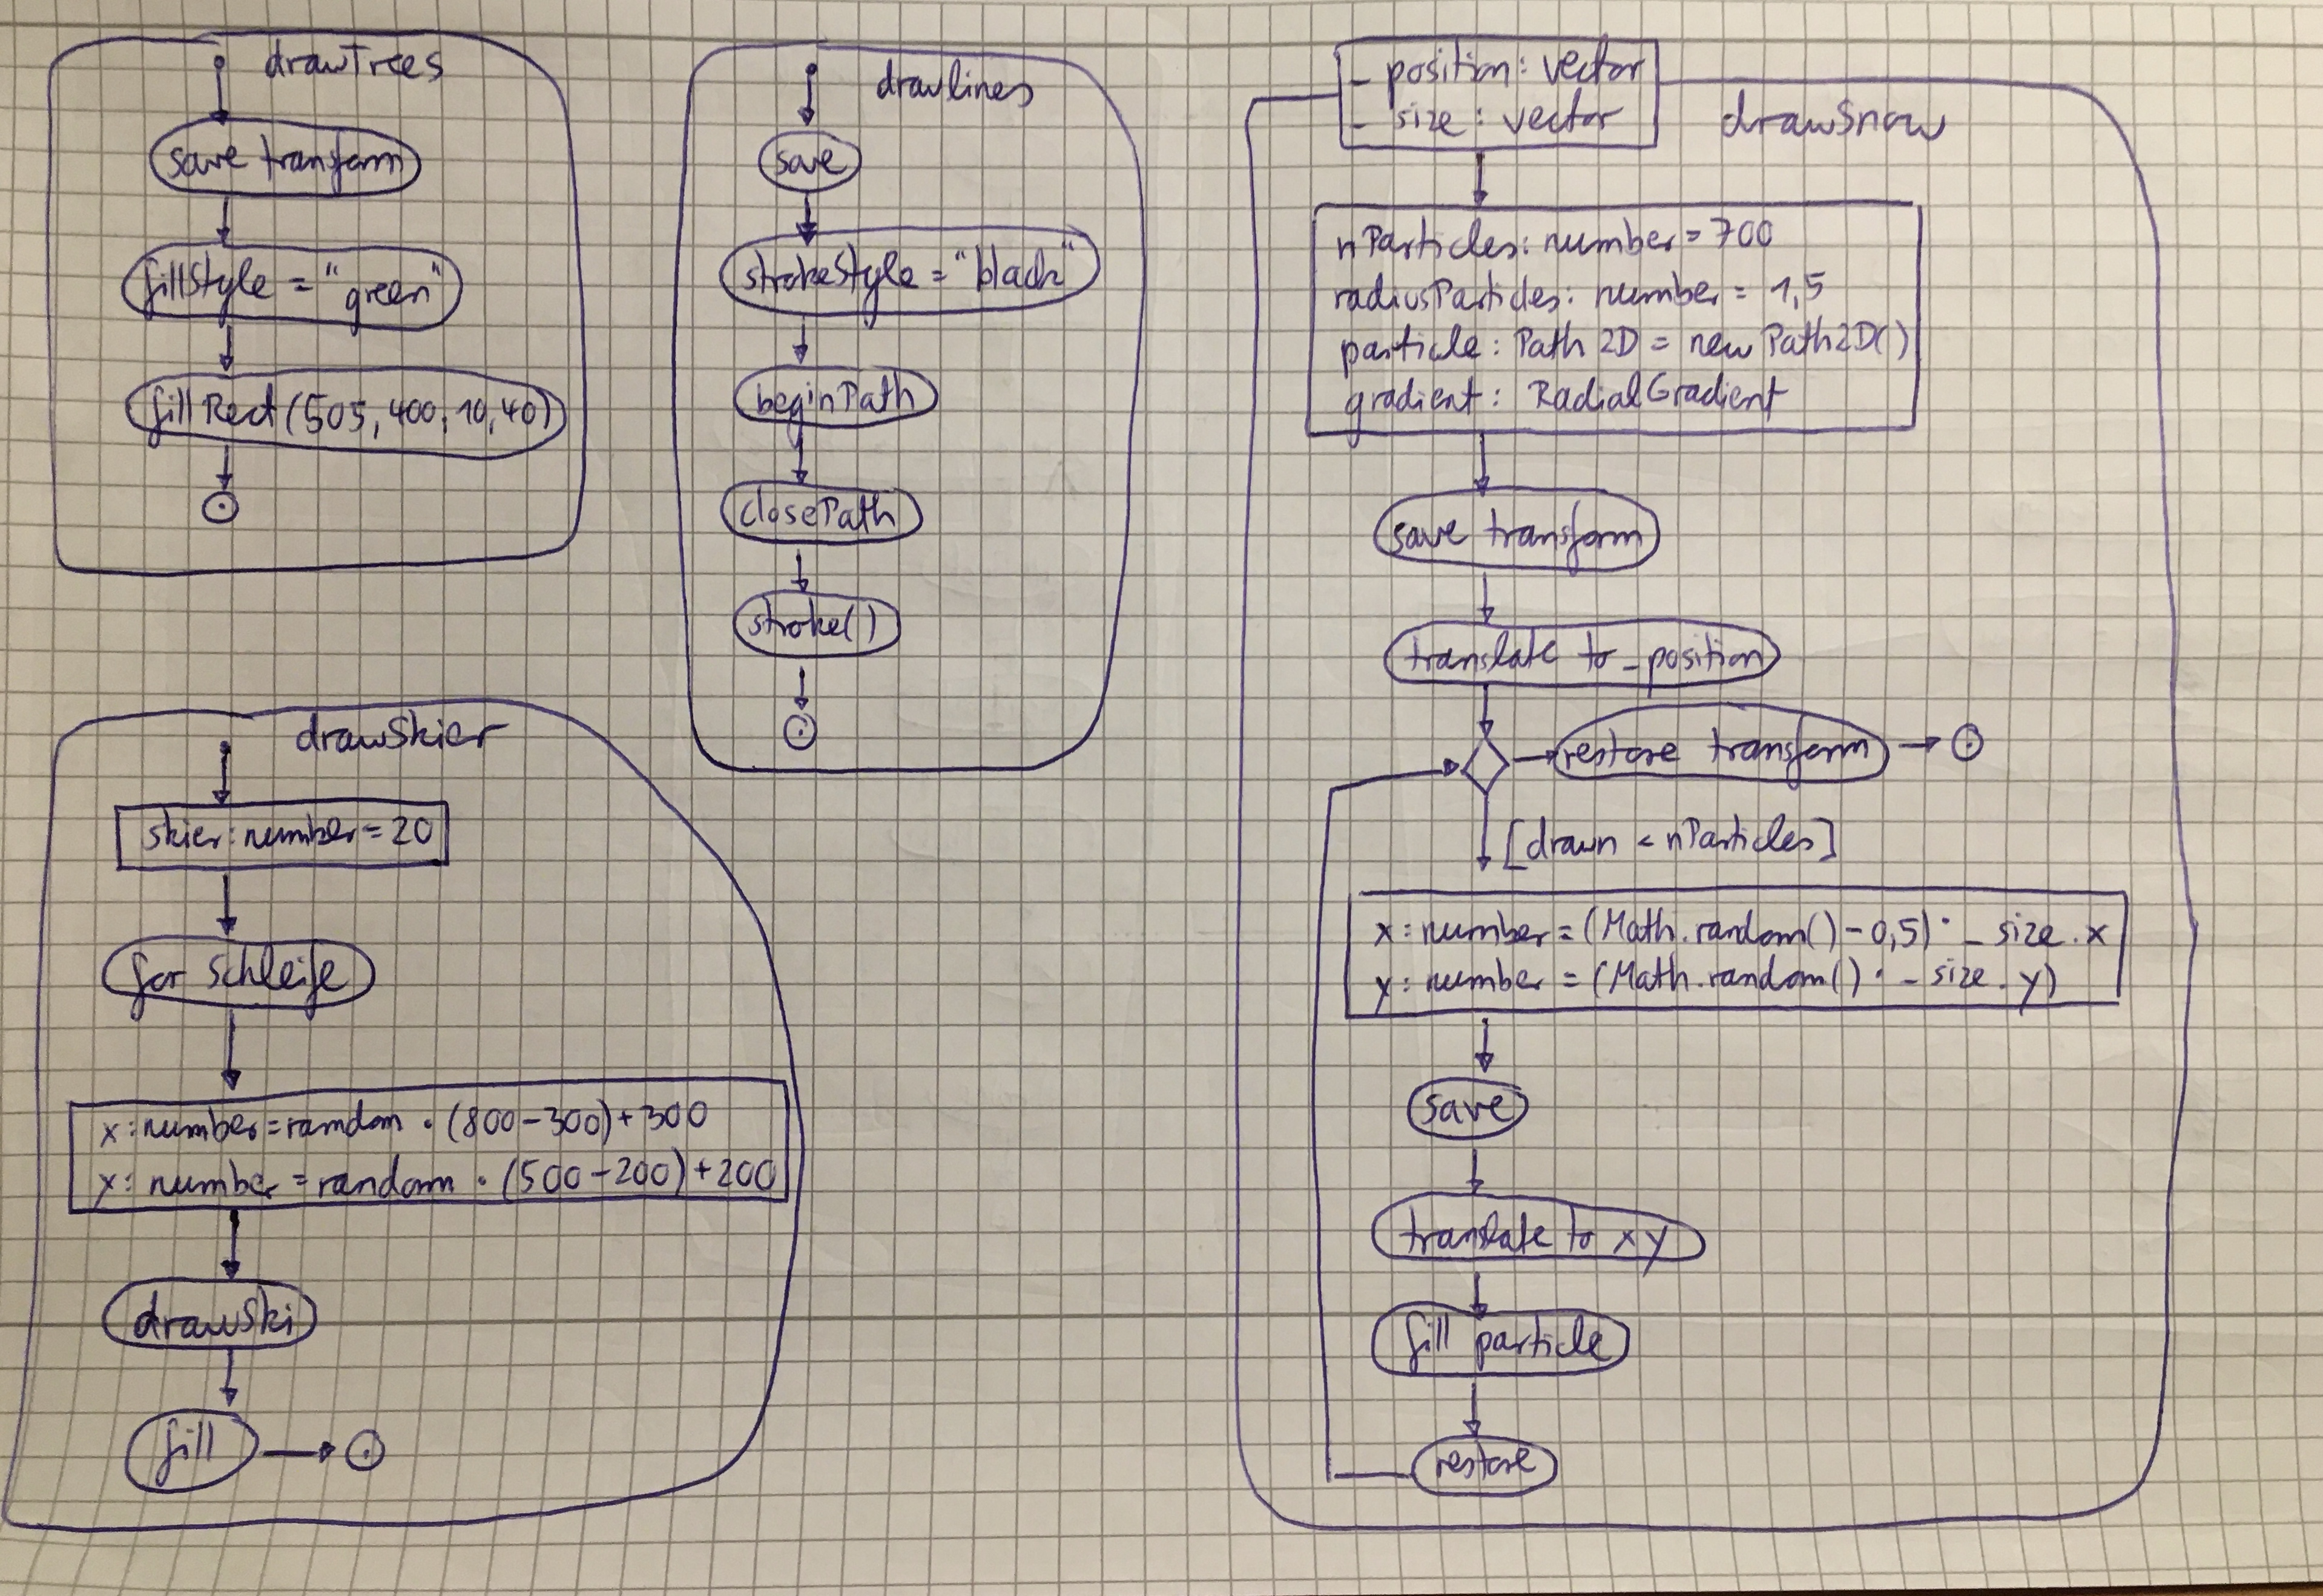 drawTrees
save transform
fillStyle = "green"
fillRect(505, 400, 10, 40)
drawlines
save
strokeStyle = "black"
beginPath
closePath
stroke()
drawSkier
skier: number = 20
for schleife
x: number = random · (800-300)+300
y: number = random · (500-200)+200
drawSki
fill
_ position: vector
_ size: vector
drawSnow
nParticles: number = 700
radiusParticles: number = 1,5
particle: Path 2D = new Path2D()
gradient: RadialGradient
save transform
translate to _position
restore transform
[drawn < nParticles]
x: number = (Math.random() - 0,5) · _ size.x
y: number = (Math.random() · _ size.y)
save
translate to xy
fill particle
restore